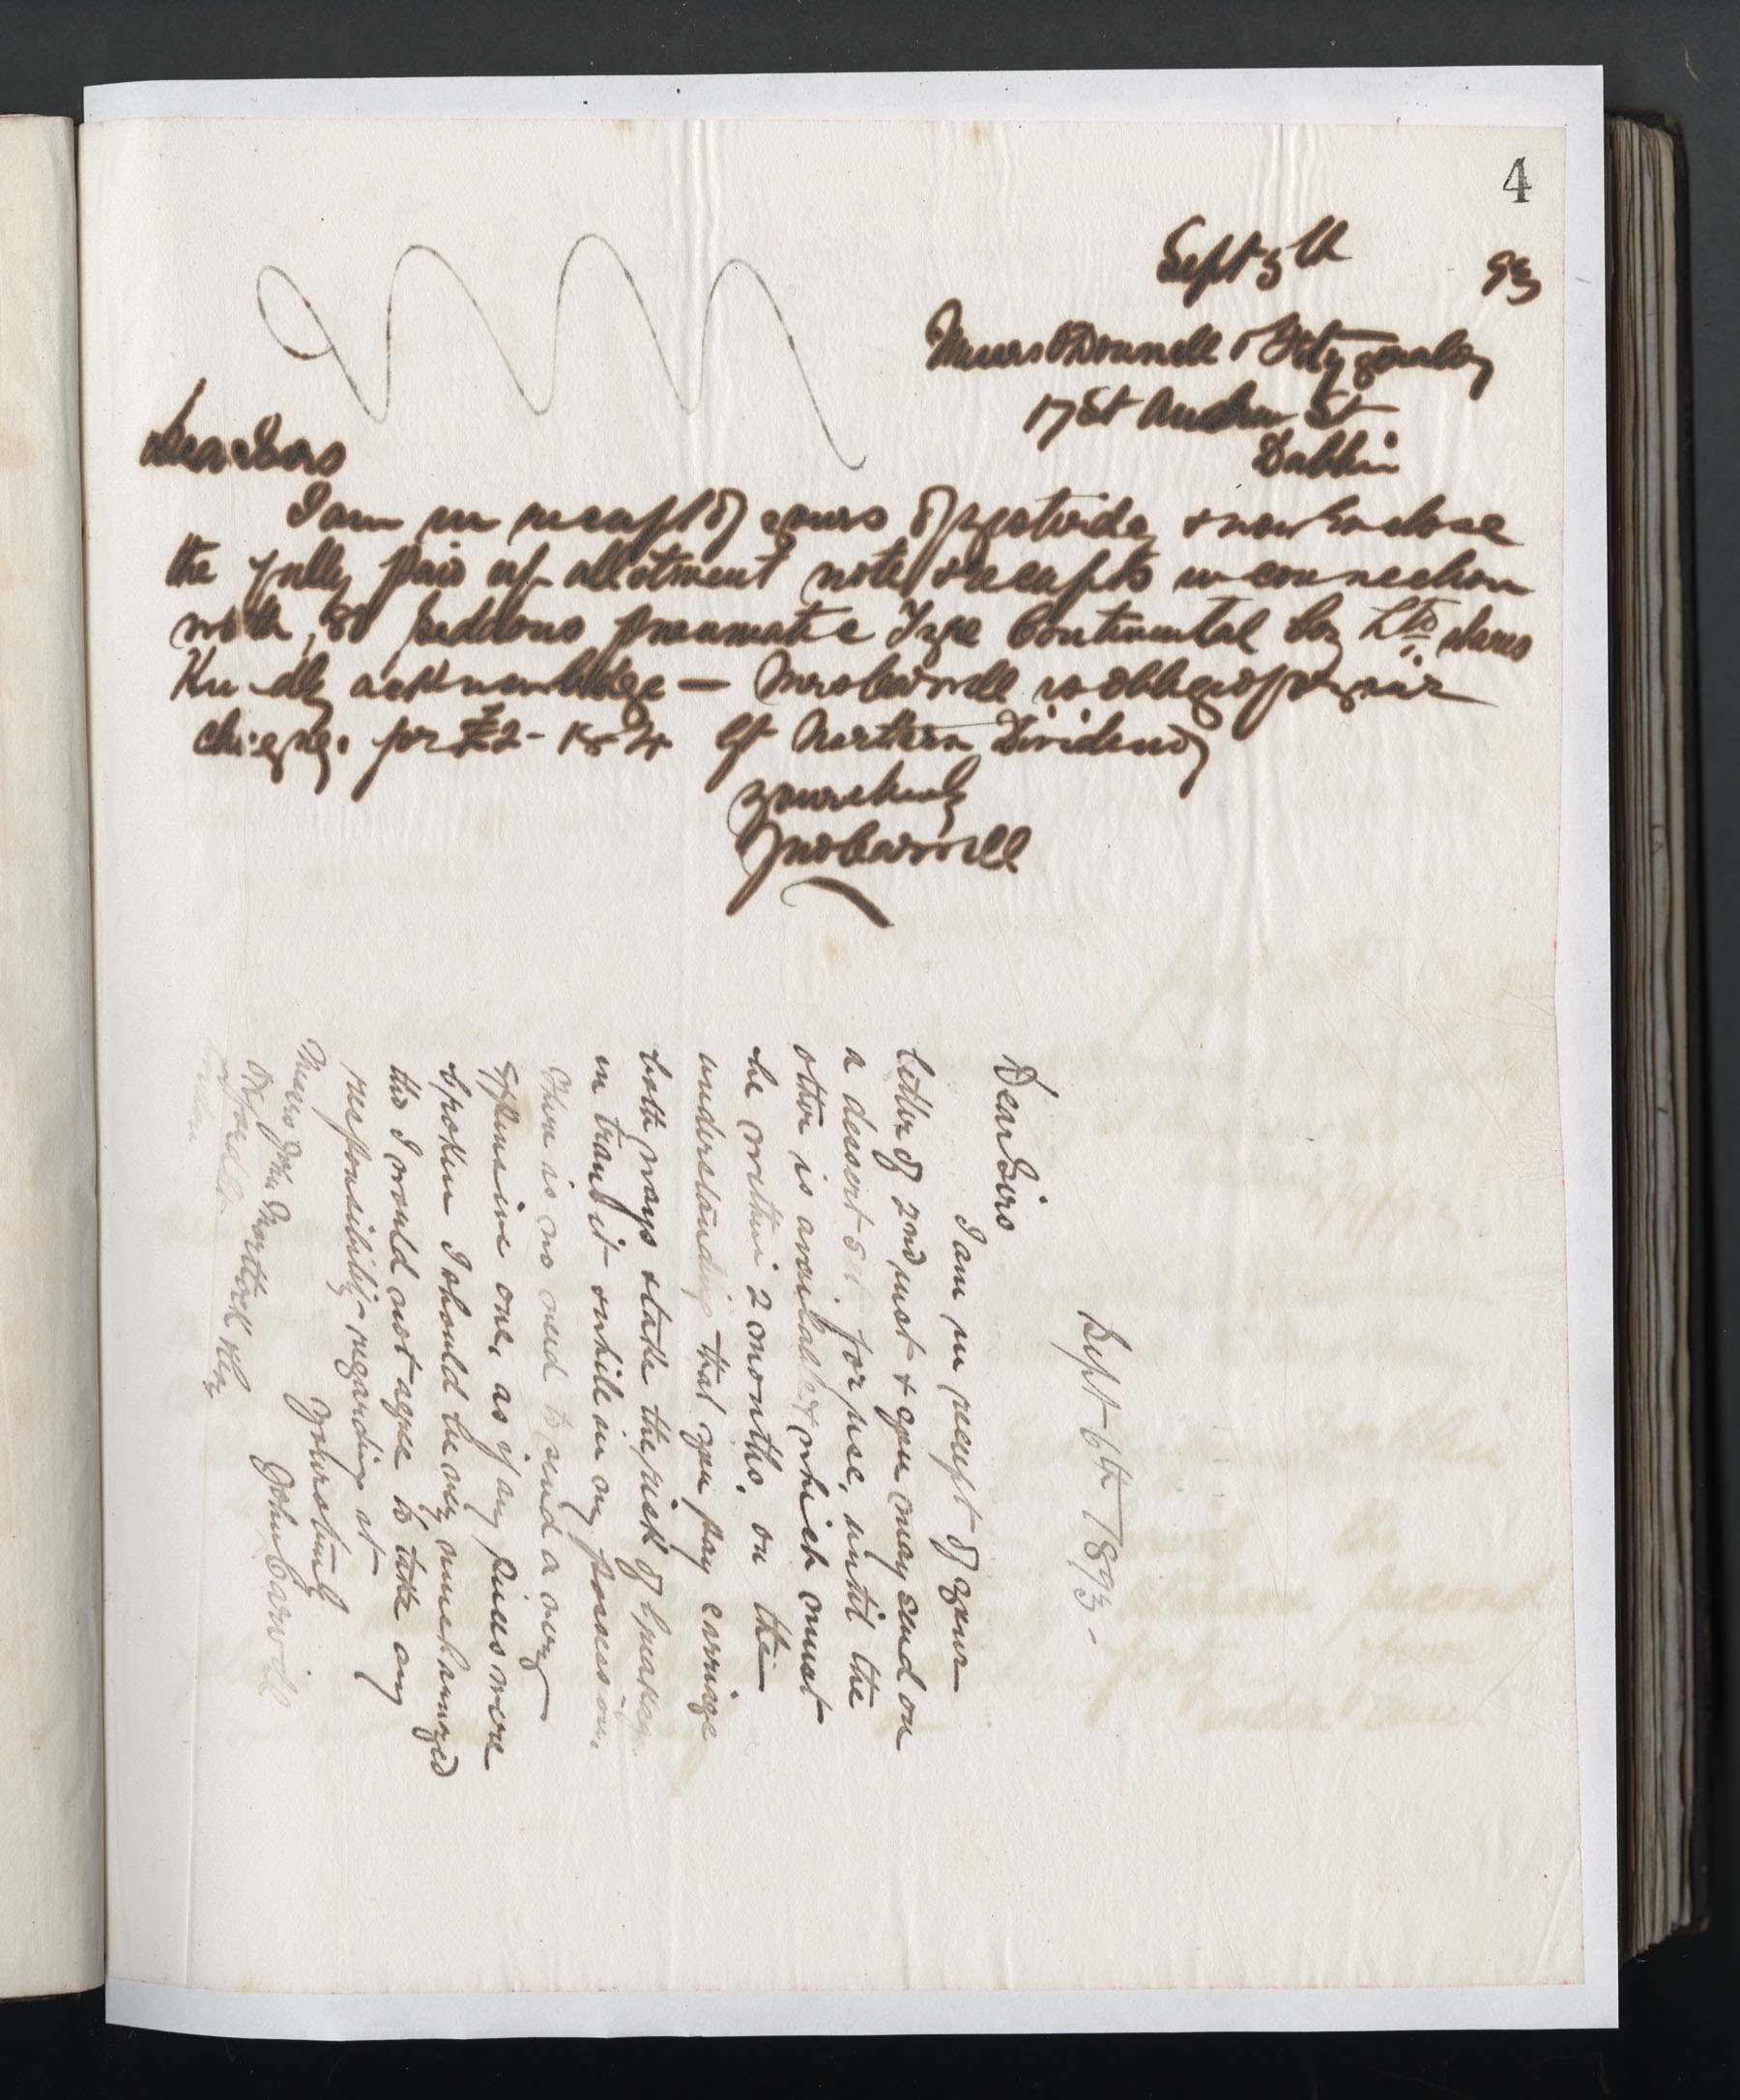 4
Sept 5th 93
Messrs O'Donnell & Fitzgerald
17 St Andrew St
Dublin
Dear Sirs
I am in receipt of yours of yesterday & now enclose
the fully paid up allotment note & receipts in connection
with 80 Seddons pneumatic Tyre Continental Coy Ltd shares
Kindly acknowledge — Mrs Carroll is obliged for your
cheque for £2- Gt Northern Dividend
yours truly
Jno Carroll
Sept 6th 1893-
Dear Sirs
I am in receipt of your
letter of 2nd inst & you may send on
a dessert set for use, until the
other is available & which must
be within 2 months. on the
understanding that you pay carriage
both ways & take the risk of breakage
in transit & while in my possession.
There is no need to send a very
expensive one, as if any pieces were
broken I should be very much annoyed
tho I would not agree to take any
responsibility regarding it
Yours truly
John Carroll
Messrs John Mortlock & Co
Oxford St.
London